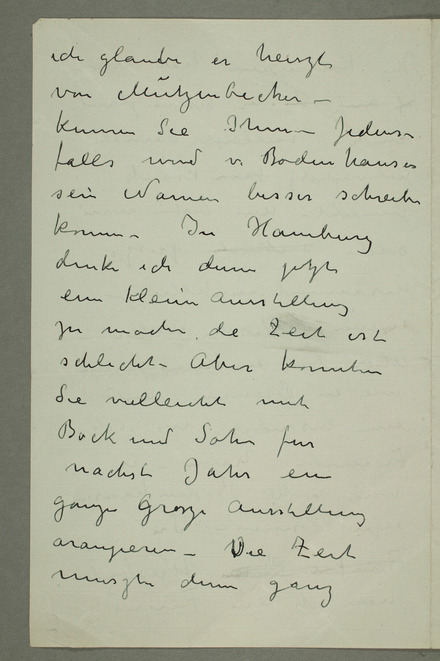 ich glaube er heiszt
von Mützenbecher –
kennen Sie Ihnn – Jedens-
falls wird v. Bodenhausen
sein Namen besser schreiben
konnen – In Hamburg
denke ich denn jetzt
ein klein Ausstellung
zu machen, de Zeit ist
schlecht – Aber konnten
Sie vielleicht mit
Bock und Sohn fur
nachste Jahr ein
ganze Grosze Ausstellung
arangieren – Die Zeit
muszte denn ganz